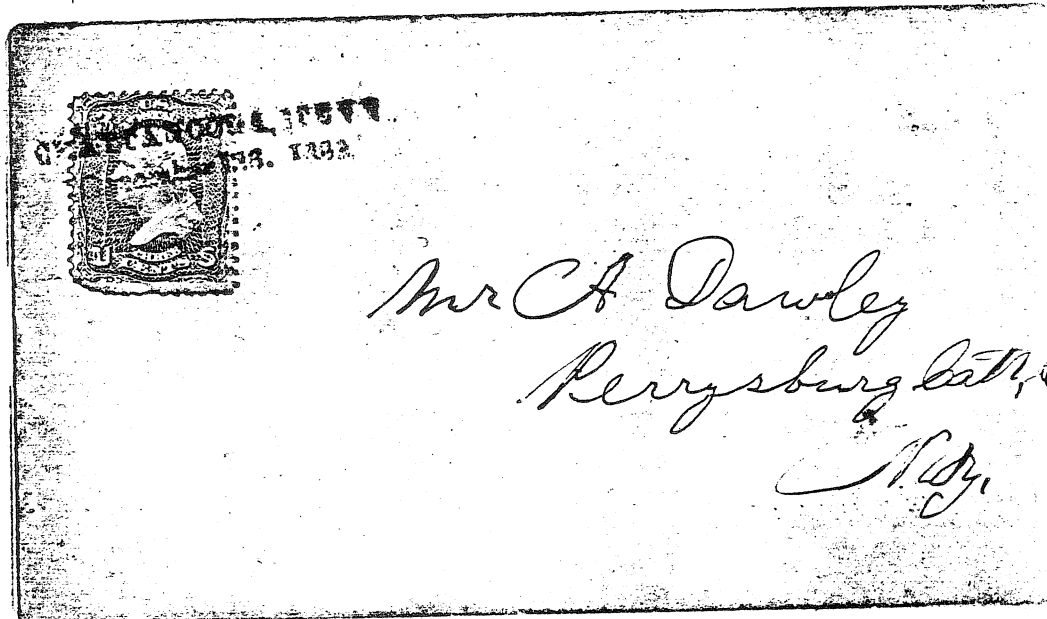 CHATTANOOGA, TENN
U S
Mr C A Dawley
Perrysburg Catt,
N.Y.